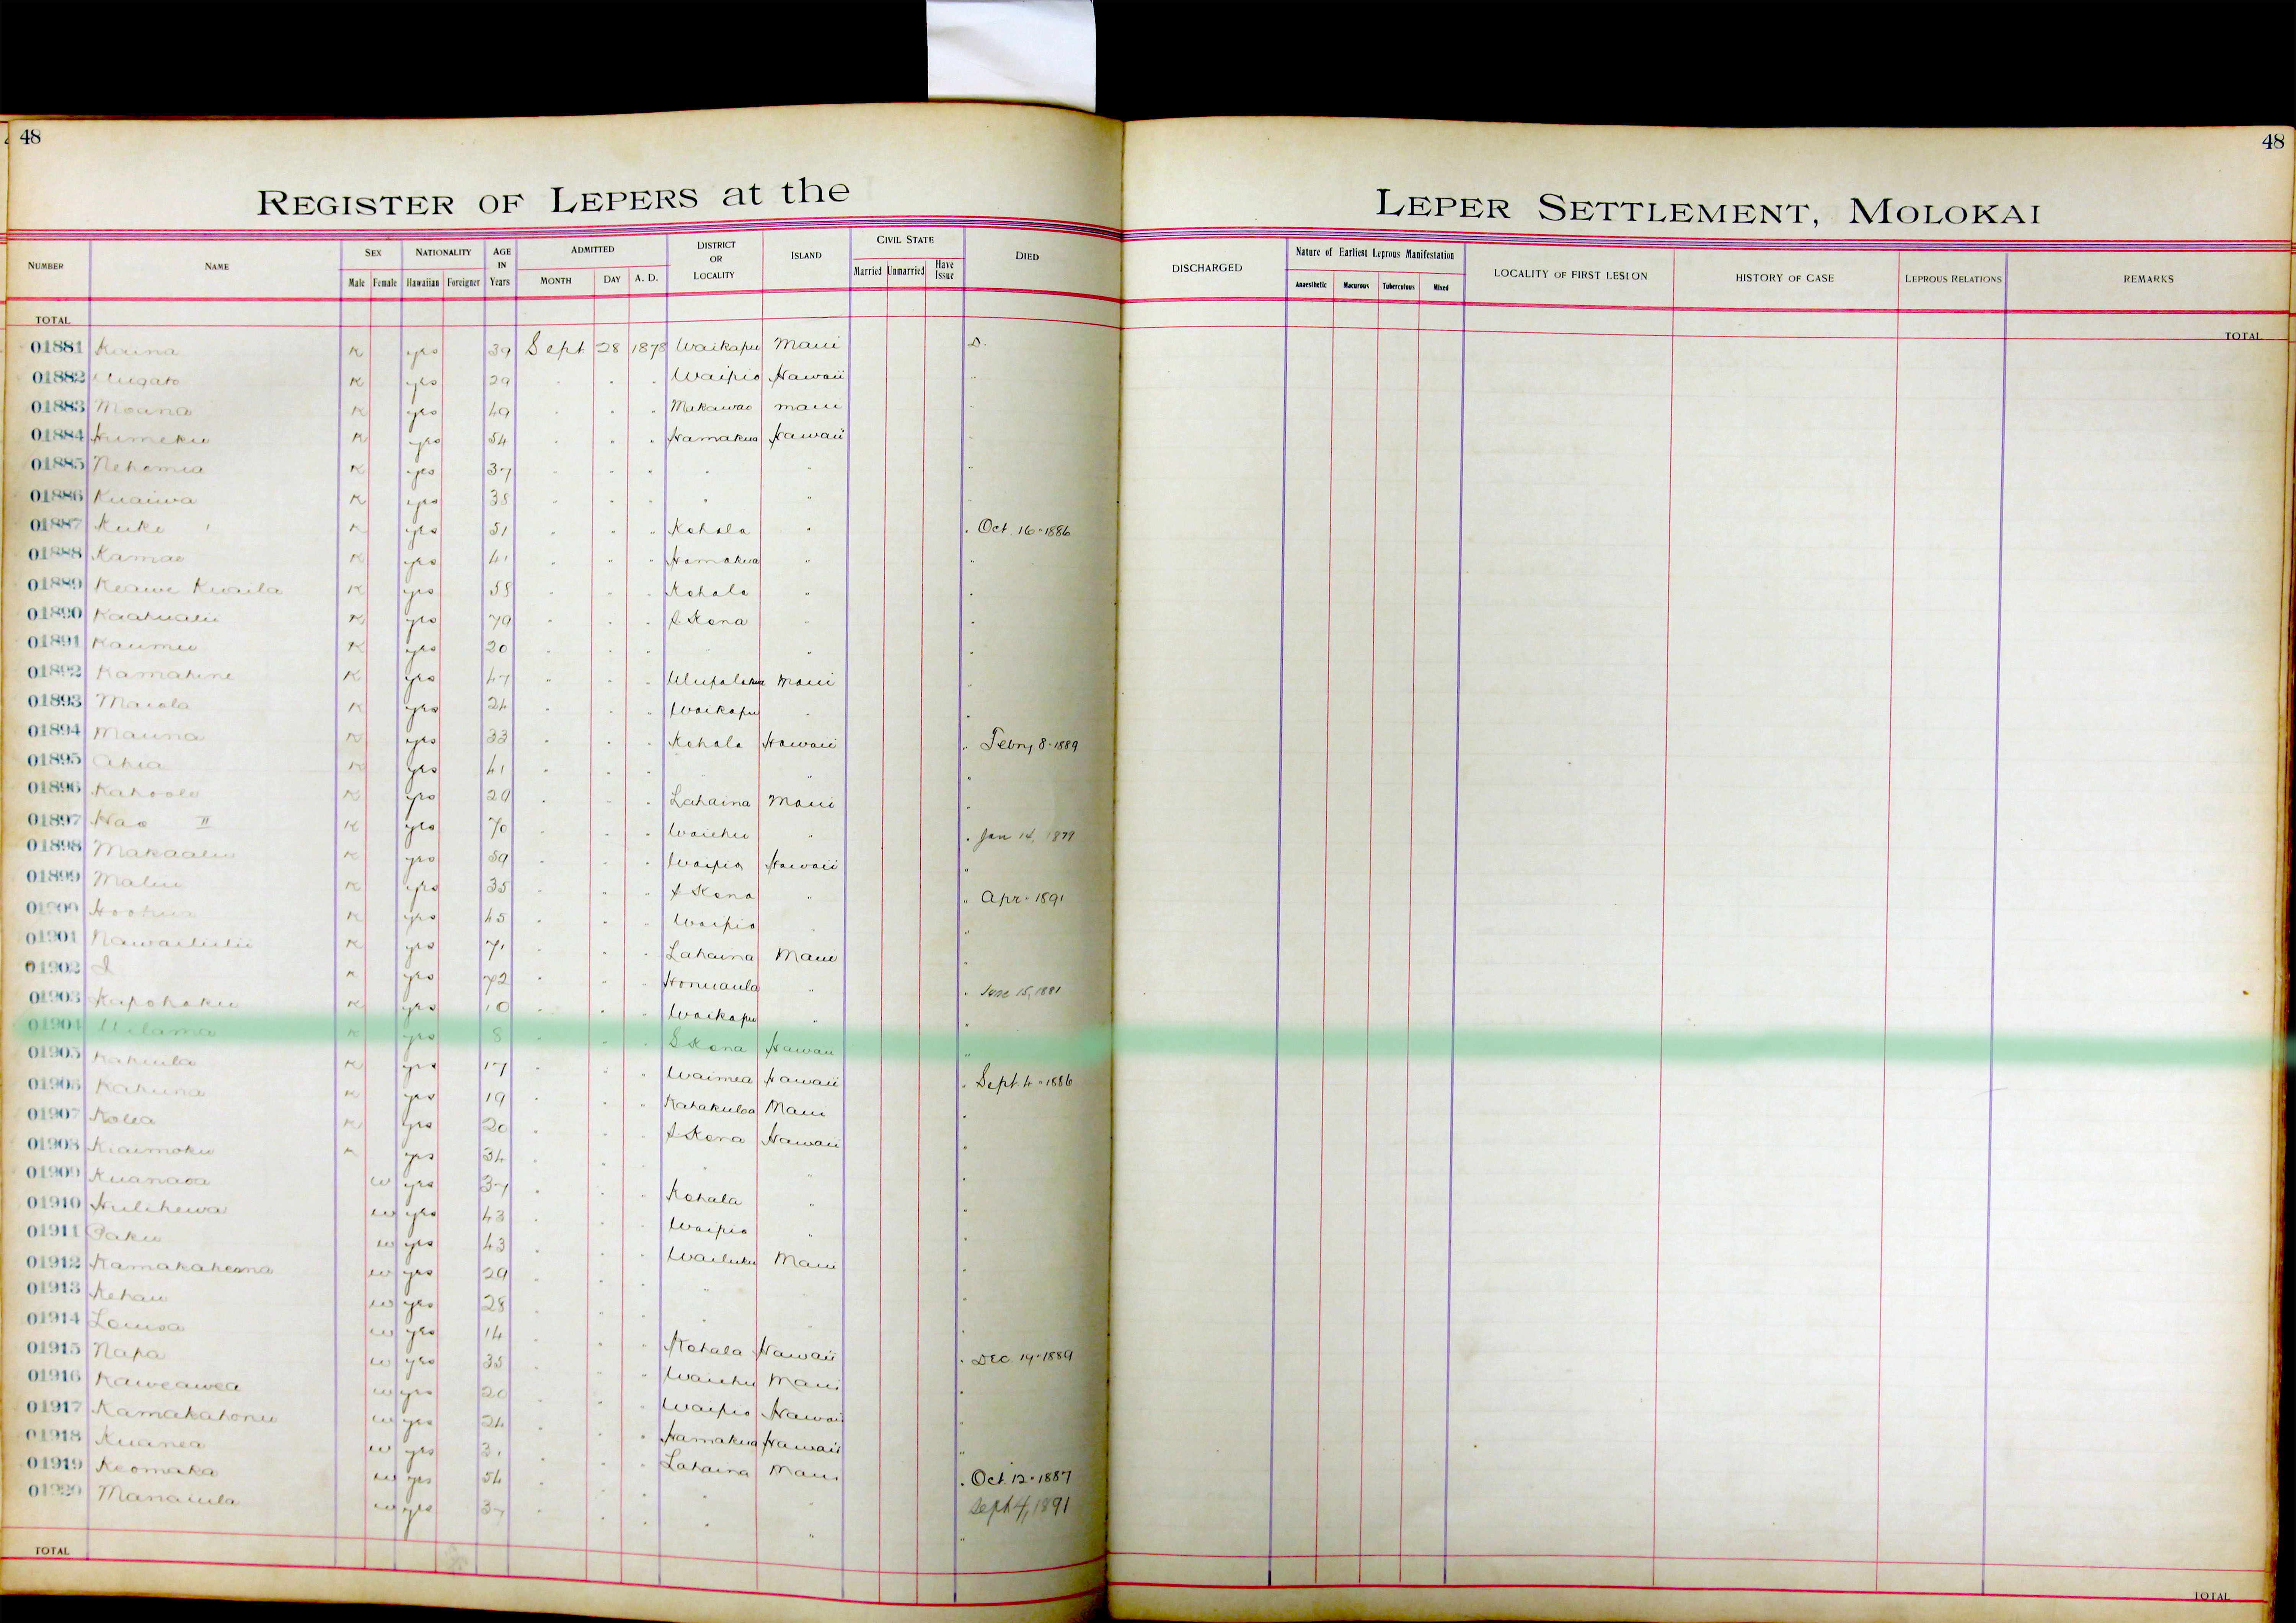 48
REGISTER OF LEPERS at the
NUMBER NAME SEX NATIONALITY AGE IN Years ADMITTED DISTRICT OR LOCALITY ISLAND CIVIL STATE DIED
Male Female Hawaiian Foreigner MONTH DAY A. D. Married Unmarried Have Issue
TOTAL
01881 K yes 39 Sept 28 1878 Waikapu Maui D.
01882 K yes 29 " " " Waipio Hawaii "
01883 Moana K yes 49 " " " Makawao Maui "
01884 Humeku K yes 54 " " " Hamakua Hawaii "
01885 Nehemia K yes 37 " " " " " "
01886 Kuaiwa K yes 38 " " " " " "
01887 Kuke K yes 51 " " " Kohala " " Oct. 16 - 1886
01888 Kamao K yes 41 " " " Hamakua " "
01889 Keawe Kuaila K yes 58 " " " Kohala " "
01890 Kaahualii K yes 79 " " " S Kona " "
01891 Kaumu K yes 20 " " " " " "
01892 Kamahine K yes 47 " " " Ulupalakua Maui "
01893 Maiola K yes 24 " " " Waikapu " "
01894 Mauna K yes 33 " " " Kohala Hawaii " Febry 8 - 1889
01895 Ahia K yes 41 " " " " " "
01896 Kahoole K yes 29 " " " Lahaina Maui "
01897 Hao II K yes 70 " " " Waiehu " " Jan 14, 1879
01898 Makaalu K yes 59 " " " Waipio Hawaii "
01899 Malu K yes 35 " " " S Kona " " Apr - 1891
01900 Hoohua K yes 45 " " " Waipio " "
01901 Nawailiilii K yes 71 " " " Lahaina Maui "
01902 I K yes 72 " " " Honuaula " " June 15, 1881
01903 Kapohaku K yes 10 " " " Waikapu " "
01904 Uilama K yes 8 " " " S Kona Hawaii "
01905 Kahuila K yes 17 " " " Waimea Hawaii " Sept. 4 - 1886
01906 Kahuna K yes 19 " " " Kahakuloa Maui "
01907 Kolea K yes 20 " " " S Kona Hawaii "
01908 Kiaimoku K yes 34 " " " " " "
01909 Kuanaoa w yes 37 " " " Kohala " "
01910 Hulihewa w yes 43 " " " Waipio " "
01911 Paku w yes 43 " " " Wailuku Maui "
01912 Kamakaheana w yes 29 " " " " " "
01913 Kehau w yes 28 " " " " "
01914 Louisa w yes 14 " " " Kohala Hawaii " Dec. 19 - 1889
01915 Napa w yes 35 " " " Waiehu Maui "
01916 Kaweawea w yes 20 " " " Waipio Hawaii "
01917 Kamakahonu w yes 24 " " " Hamakua Hawaii "
01918 Kuanea w yes 31 " " " Lahaina Maui " Oct. 12 - 1887
01919 Keomaka w yes 54 " " " " " Sept 4, 1891
01920 Manaiula w yes 37 " " " " " "
TOTAL
48
LEPER SETTLEMENT, MOLOKAI
DISCHARGED Nature of Earliest Leprous Manifestation LOCALITY OF FIRST LESION HISTORY OF CASE LEPROUS RELATIONS REMARKS
Anaesthetic Macurous Tuberculous Mixed
TOTAL
TOTAL